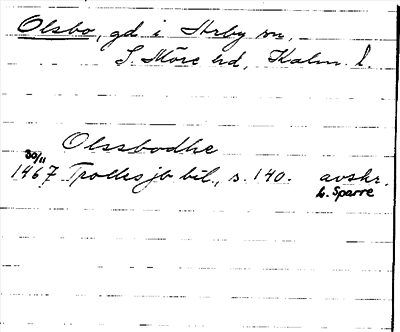 Olsbo, gd i Torby sn,
S. Möre hd, Kalm. l.
Olssbodhe
30/11
1467 Trolles jb bil., s. 140. avskr.
L. Sparre